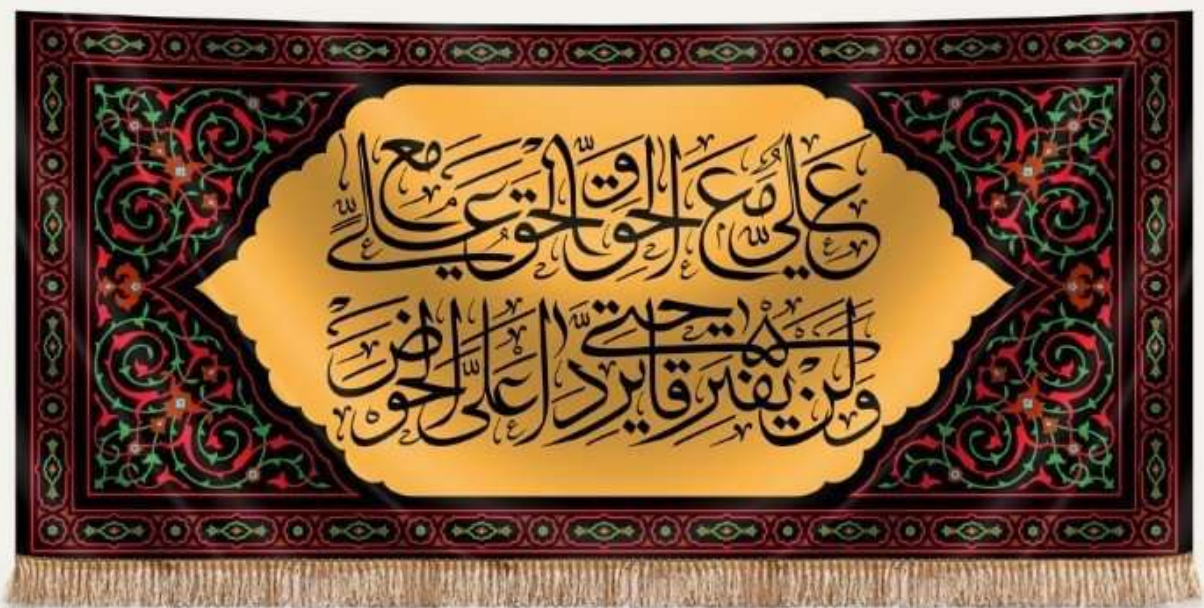 علي مع الحق والحق مع علي
ولن يفترقا حتى يردا على الحوض